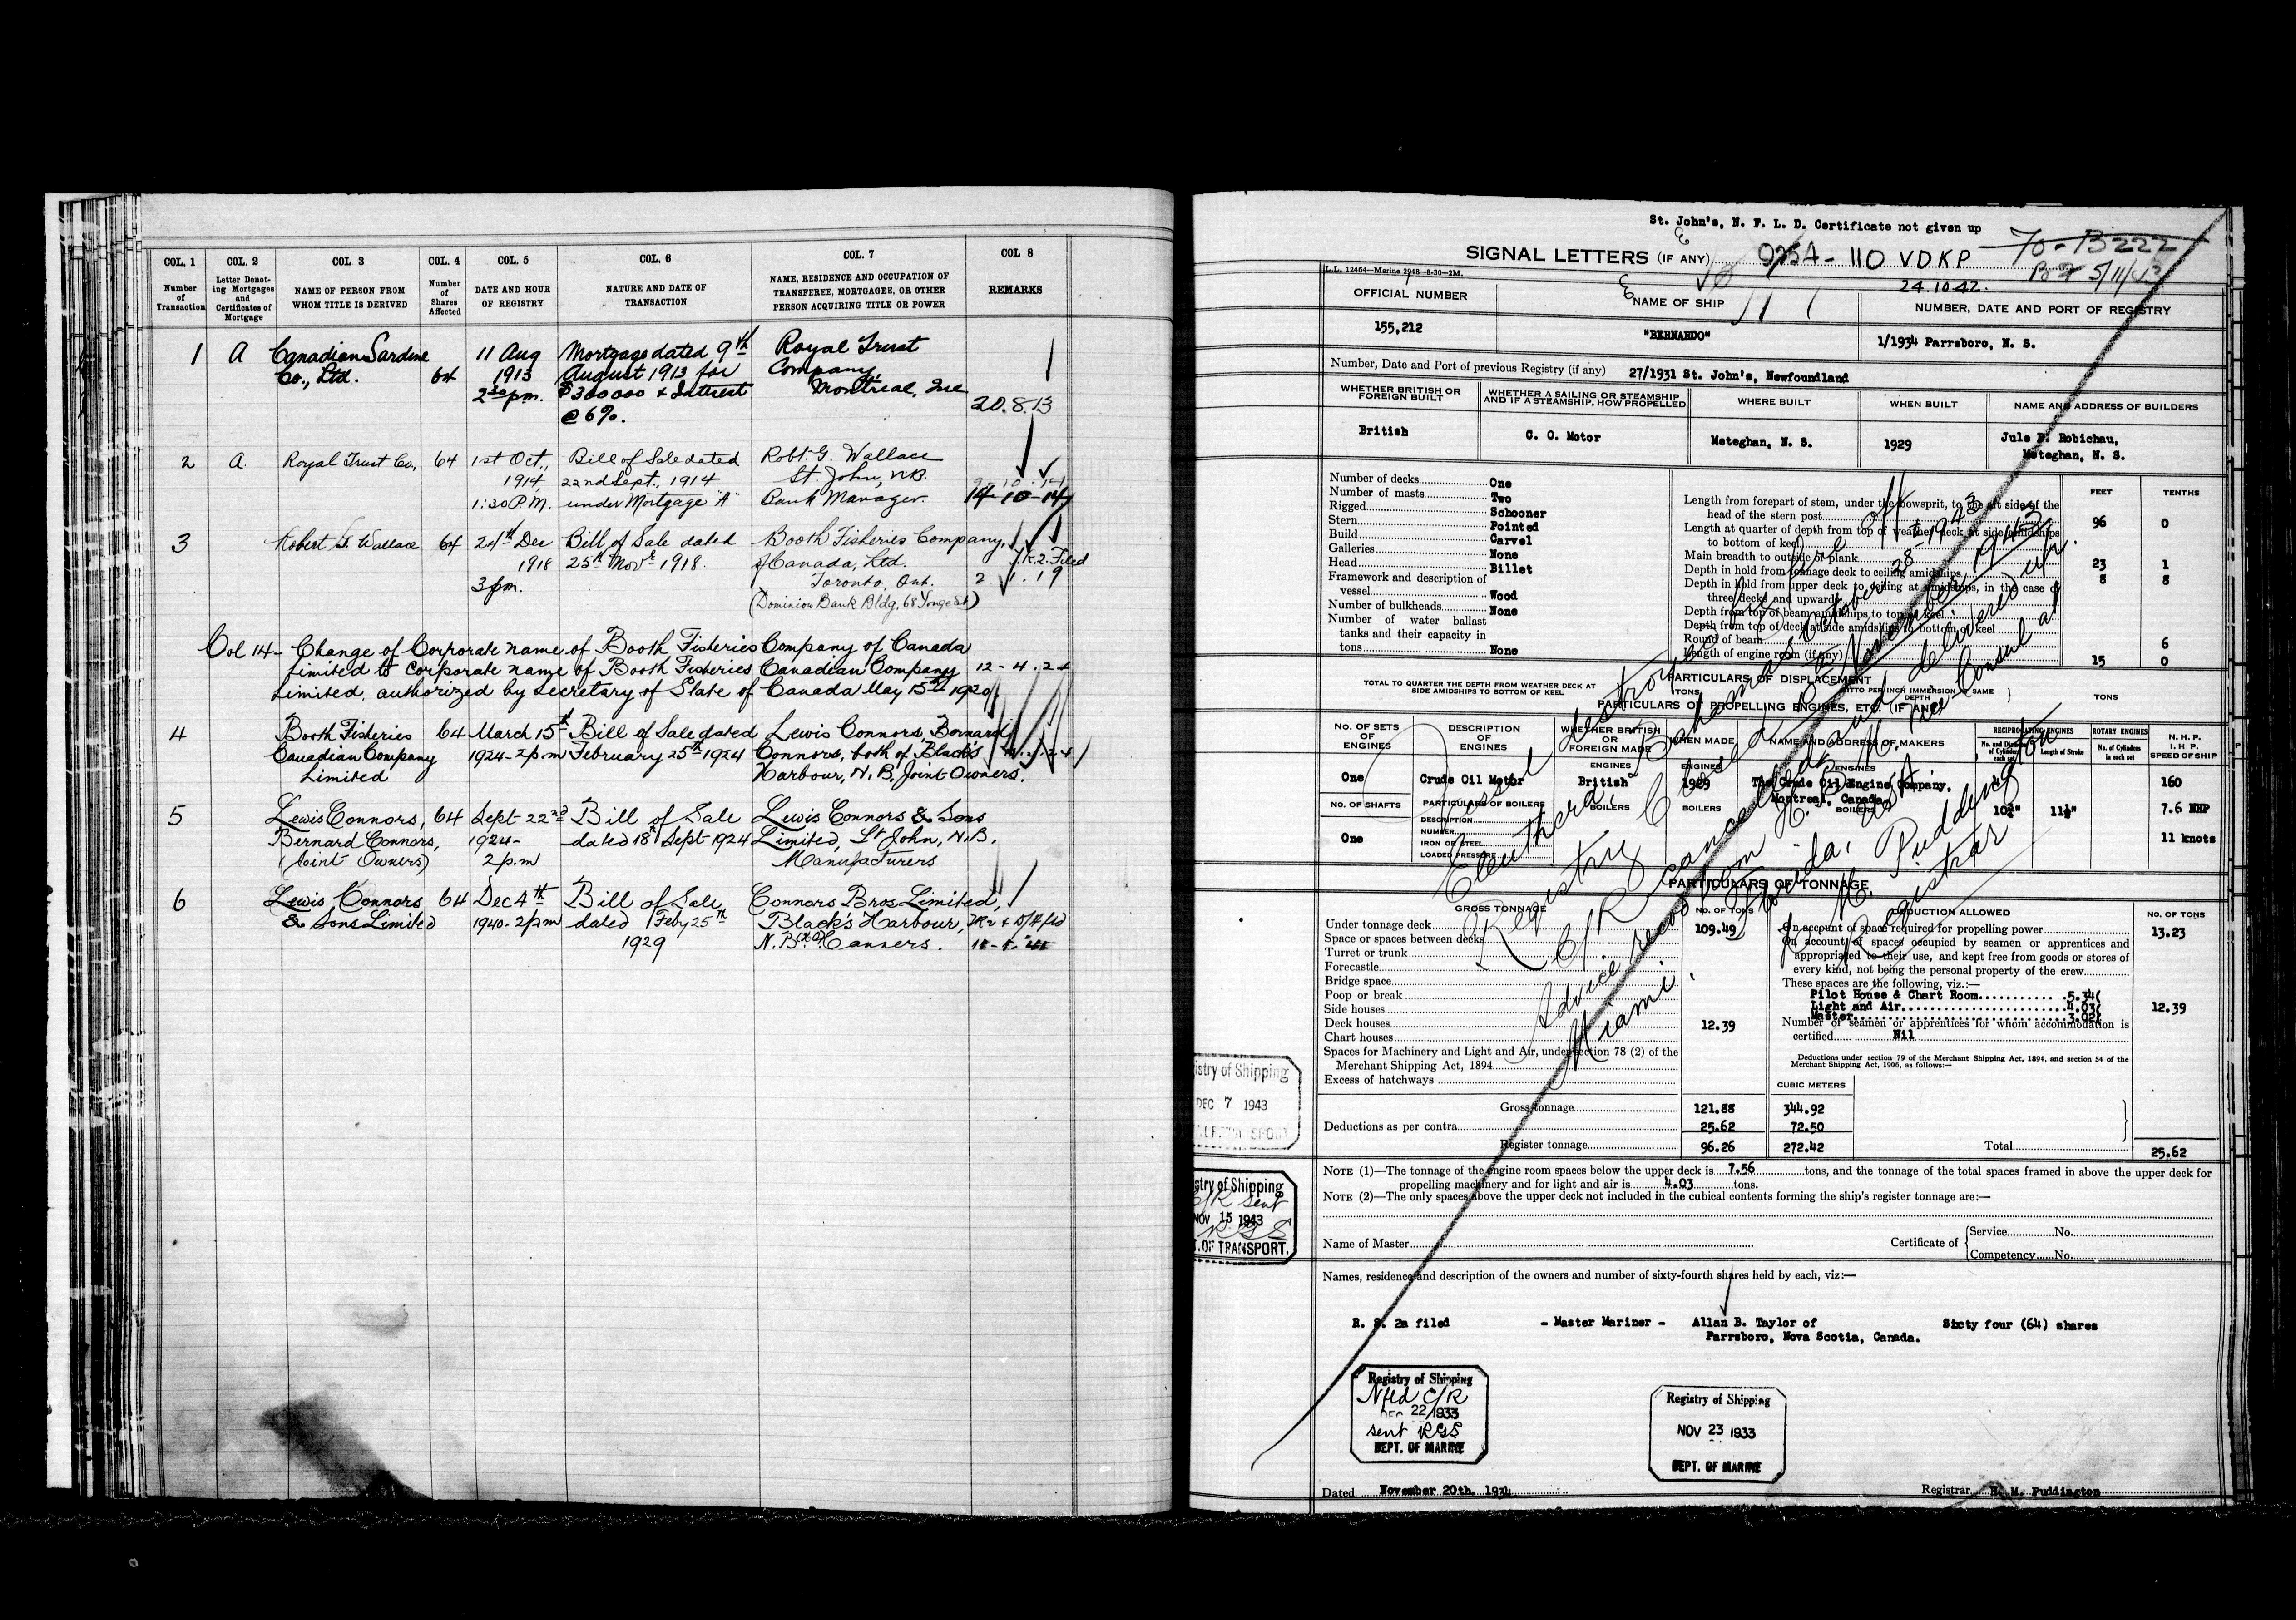 COL. 1 COL. 2 COL. 3 COL. 4 COL. 5 COL. 6 COL. 7 COL 8
Number of Transaction
Letter Denoting Mortgages and Certificates of Mortgage
NAME OF PERSON FROM WHOM TITLE IS DERIVED
Number of Shares Affected
DATE AND HOUR OF REGISTRY
NATURE AND DATE OF TRANSACTION
NAME, RESIDENCE AND OCCUPATION OF TRANSFEREE, MORTGAGEE, OR OTHER PERSON ACQUIRING TITLE OR POWER
REMARKS
1 A Canadian Sardine 11 Aug Mortgage dated 9th Royal Trust
Co., Ltd. 64 1913 August 1913 for Company,
2 30 pm. $300000 & Interest Montreal, Que
@ 6%. 20.8.13
2 A. Royal Trust Co., 64 1st Oct., Bill of Sale dated Robt. G. Wallace
1914, 22nd Sept., 1914 St. John, N.B.
1:30 P.M. under Mortgage "A" Bank Manager. 14-10-14
3 Robert G. Wallace 64 24th Dec Bill of Sale dated Booth Fisheries Company,
1918 25th Novr 1918. of Canada, Ltd. Filed
3 pm. Toronto, Ont. 2.1.19
(Dominion Bank Bldg, 68 Yonge St.)
Col 14 - Change of Corporate name of Booth Fisheries Company of Canada
Limited to corporate name of Booth Fisheries Canadian Company 12-4-24
Limited, authorized by Secretary of State of Canada May 15th 1920
4 Booth Fisheries 64 March 15th Bill of Sale dated Lewis Connors, Bernard
Canadian Company 1924-2 pm February 25th 1924 Connors, both of Black's
Limited Harbour, N.B, Joint Owners.
5 Lewis Connors, 64 Sept 22nd Bill of Sale Lewis Connors & Sons
Bernard Connors, 1924- dated 18th Sept 1924 Limited, St John, N.B.
(Joint Owners) 2 p.m Manufacturers
6 Lewis Connors 64 Dec 4th Bill of Sale Connors Bros Limited,
& Sons Limited 1940-2pm dated Feby 25th Black's Harbour,
1929 N.B. Canners.
St. John's, N. F. L. D. Certificate not given up
SIGNAL LETTERS (IF ANY) 110 VDKP 70-B222
24.10.42. 5/11/43
L.L. 12464—Marine 2948—8-30—2M.
OFFICIAL NUMBER NAME OF SHIP NUMBER, DATE AND PORT OF REGISTRY
155,212 "BERNARDO" 1/1934 Parrsboro, N. S.
Number, Date and Port of previous Registry (if any) 27/1931 St. John's, Newfoundland
WHETHER BRITISH OR FOREIGN BUILT
WHETHER A SAILING OR STEAMSHIP AND IF A STEAMSHIP, HOW PROPELLED
WHERE BUILT
WHEN BUILT
NAME AND ADDRESS OF BUILDERS
British C. O. Motor Meteghan, N. S. 1929 Jule Robichau,
Meteghan, N. S.
Number of decks One
Number of masts Two
Rigged Schooner
Stern Pointed
Build Carvel
Galleries None
Head Billet
Framework and description of
vessel Wood
Number of bulkheads None
Number of water ballast
tanks and their capacity in
tons None
FEET TENTHS
Length from forepart of stem, under the bowsprit, to the aft side of the
head of the stern post 96 0
Length at quarter of depth from top of weather deck at side amidships
to bottom of keel
Main breadth to outside of plank 23 1
Depth in hold from tonnage deck to ceiling amidships 8 8
Depth in hold from upper deck to ceiling at amidships, in the case of
three decks and upwards
Depth from top of beam amidships to top of keel
Depth from top of deck at side amidships to bottom of keel
Round of beam 6
Length of engine room (if any) 15 0
Vessel destroyed by fire off
Eleuthera, Bahamas October 28th 1943
Registry Closed November 1943
C/R cancelled and delivered up.
Advice received from H.B.M. Vice Consul at
Miami, Florida, USA
H. M. Puddington
Registrar
PARTICULARS OF DISPLACEMENT
TOTAL TO QUARTER THE DEPTH FROM WEATHER DECK AT SIDE AMIDSHIPS TO BOTTOM OF KEEL
TONS
DITTO PER INCH IMMERSION AT SAME DEPTH
TONS
PARTICULARS OF PROPELLING ENGINES, ETC. (IF ANY)
NO. OF SETS OF ENGINES
DESCRIPTION OF ENGINES
WHETHER BRITISH OR FOREIGN MADE
WHEN MADE
NAME AND ADDRESS OF MAKERS
RECIPROCATING ENGINES
No. and Diameter of Cylinders in each set
Length of Stroke
ROTARY ENGINES
No. of Cylinders in each set
N. H. P.
I. H. P.
SPEED OF SHIP
ENGINES ENGINES ENGINES
One Crude Oil Motor British 1929 The Crude Oil Engine Company, 160
Montreal, Canada
NO. OF SHAFTS PARTICULARS OF BOILERS BOILERS BOILERS BOILERS 7.6 NHP
DESCRIPTION
NUMBER
IRON OR STEEL
LOADED PRESSURE
One 11 knots
PARTICULARS OF TONNAGE
GROSS TONNAGE NO. OF TONS DEDUCTION ALLOWED NO. OF TONS
Under tonnage deck 109.49
Space or spaces between decks
Turret or trunk
Forecastle
Bridge space
Poop or break
Side houses
Deck houses 12.39
Chart houses
Spaces for Machinery and Light and Air, under section 78 (2) of the
Merchant Shipping Act, 1894
Excess of hatchways
On account of space required for propelling power 13.23
On account of spaces occupied by seamen or apprentices and
appropriated to their use, and kept free from goods or stores of
every kind, not being the personal property of the crew
These spaces are the following, viz.:—
Pilot House & Chart Room 5.34(
Light and Air 4.03( 12.39
Master 3.02(
Number of seamen or apprentices for whom accommodation is
certified Nil
Deductions under section 79 of the Merchant Shipping Act, 1894, and section 54 of the
Merchant Shipping Act, 1906, as follows:—
CUBIC METERS
Gross tonnage 121.88 344.92
Deductions as per contra 25.62 72.50
Register tonnage 96.26 272.42 Total 25.62
NOTE (1)—The tonnage of the engine room spaces below the upper deck is 7.56 tons, and the tonnage of the total spaces framed in above the upper deck for
propelling machinery and for light and air is 4.03 tons.
NOTE (2)—The only spaces above the upper deck not included in the cubical contents forming the ship's register tonnage are:—
Name of Master Certificate of Service No.
Competency No.
Names, residence and description of the owners and number of sixty-fourth shares held by each, viz:—
R. S. 2a filed - Master Mariner - Allan B. Taylor of Sixty four (64) shares
Parrsboro, Nova Scotia, Canada.
istry of Shipping
DEC 7 1943
stry of Shipping
C/R sent
NOV 15 1943
T. OF TRANSPORT.
Registry of Shipping
Nfld C/R
DEC 22 1933
sent
DEPT. OF MARINE
Registry of Shipping
NOV 23 1933
DEPT. OF MARINE
Dated November 20th. 1934 Registrar H. M. Puddington